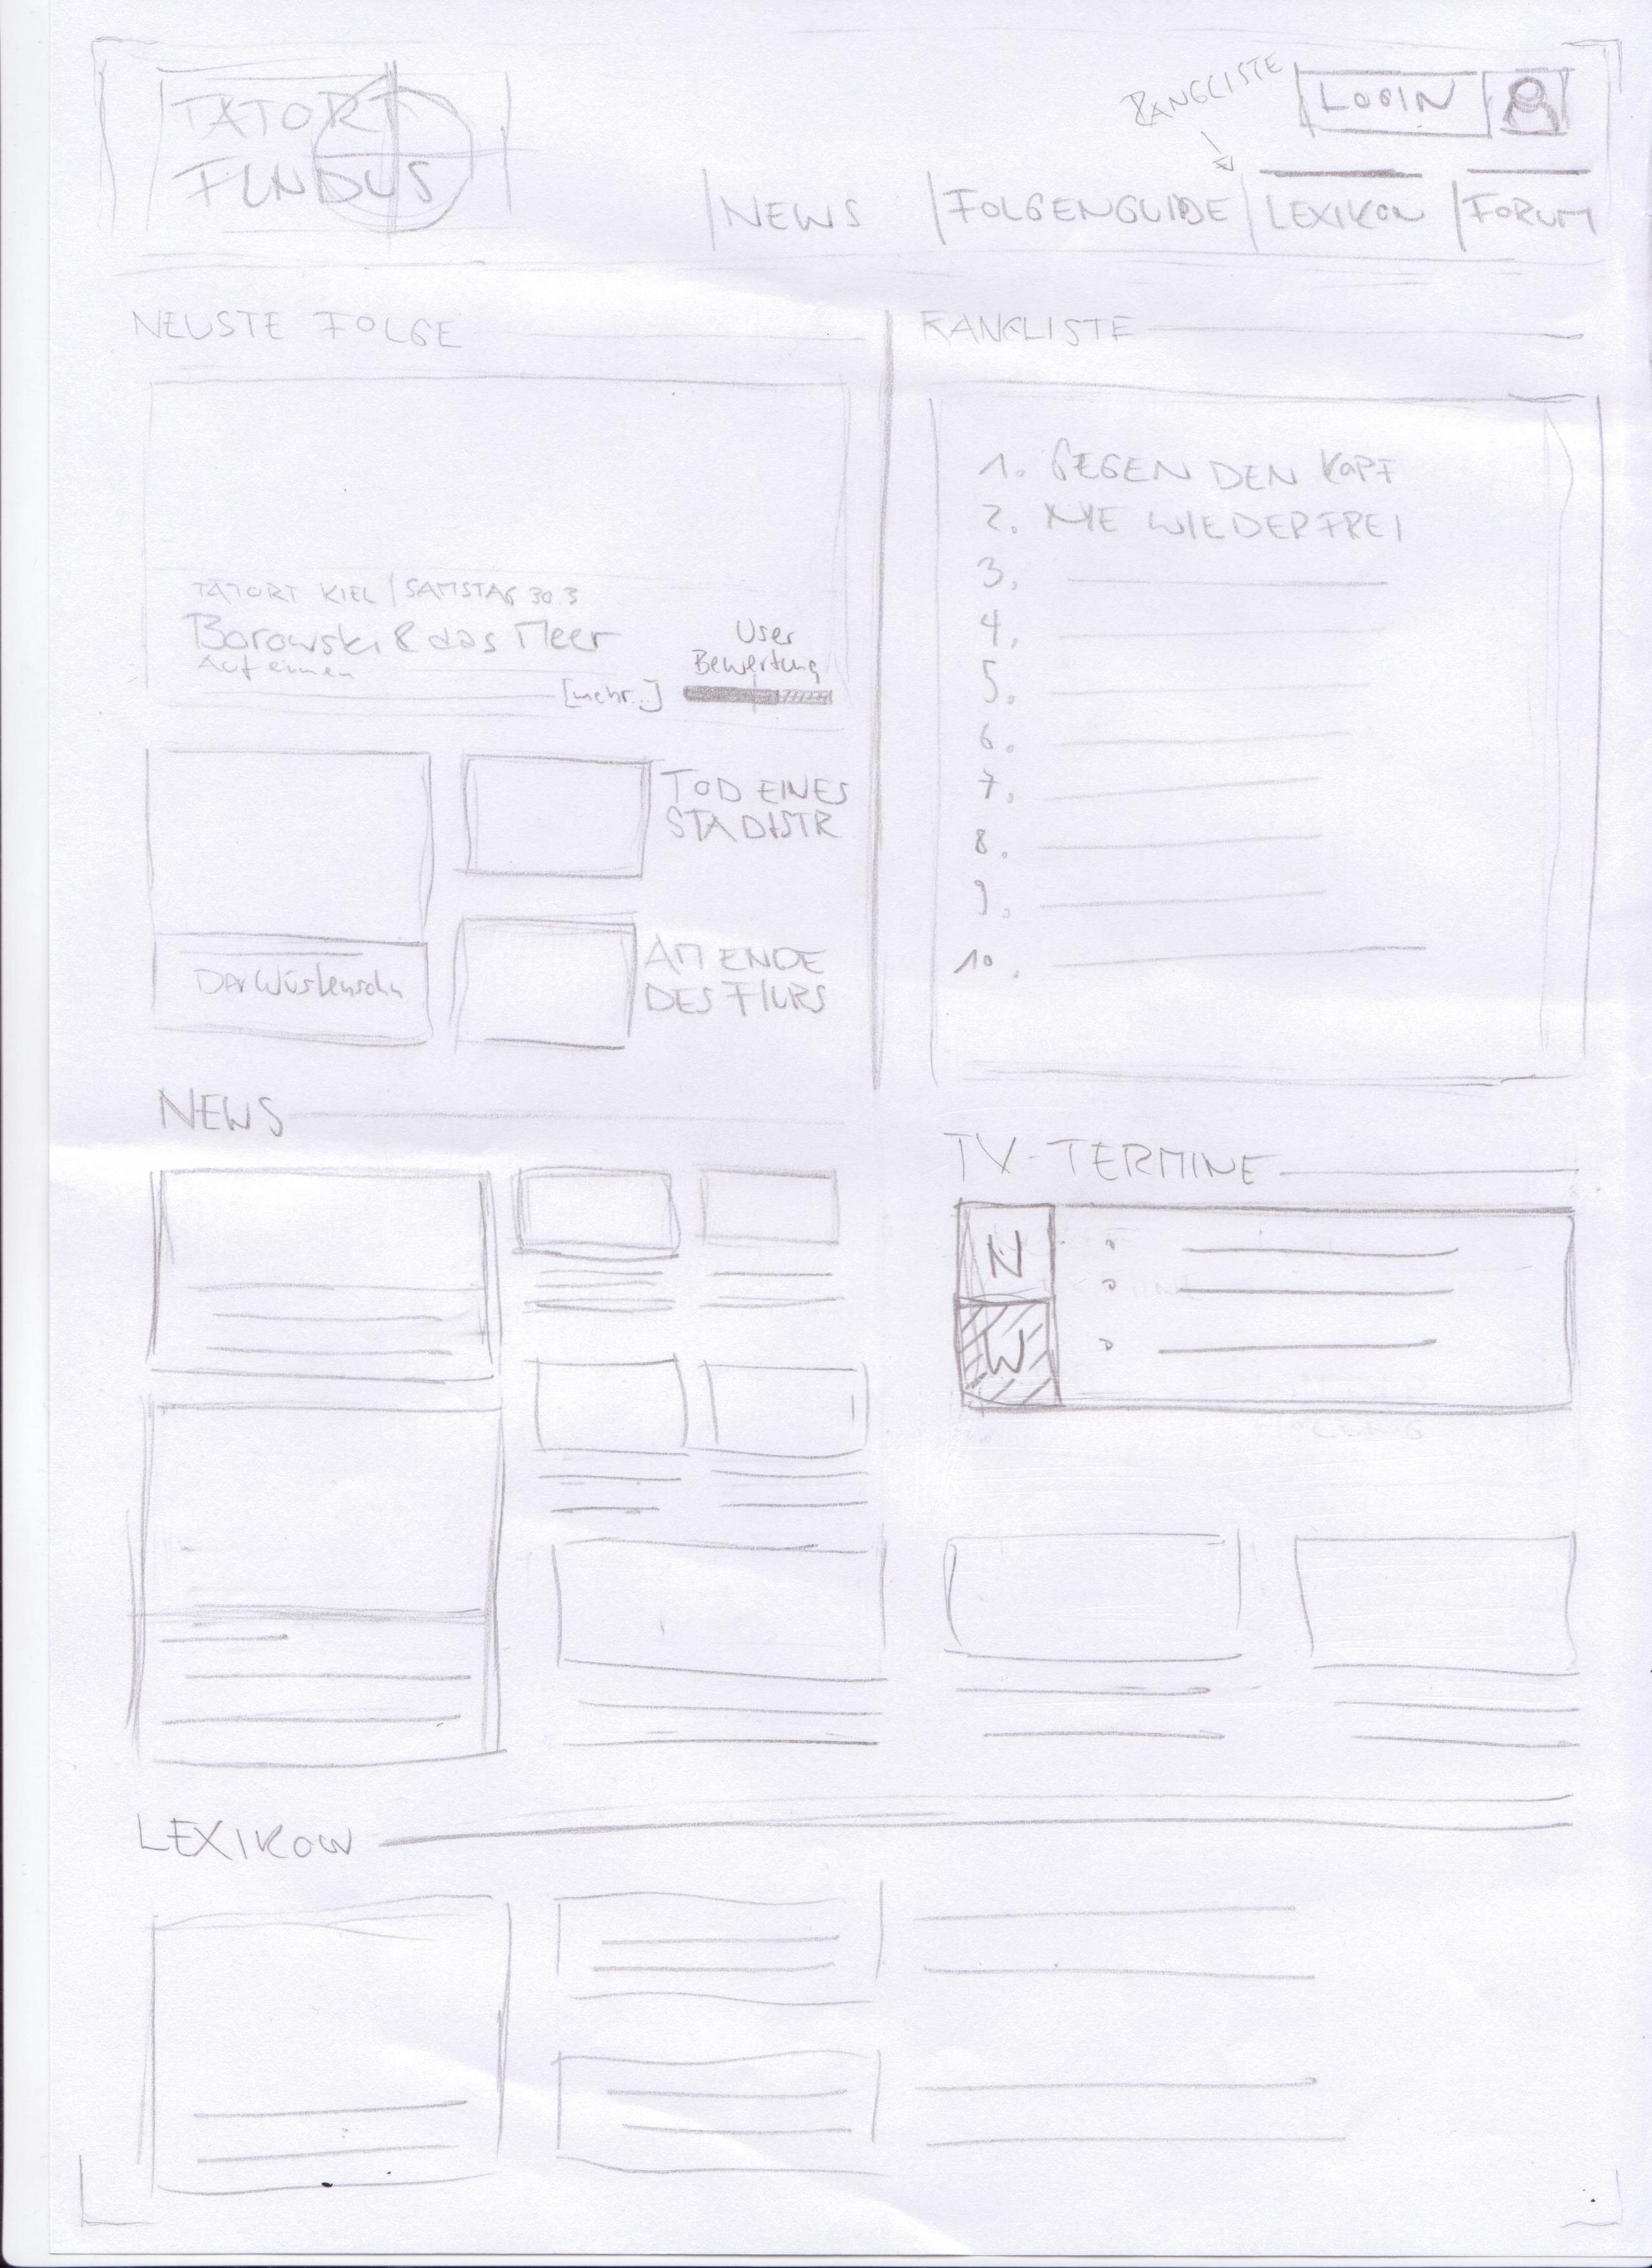 TATORT
FUNDUS
RANGLISTE
LOGIN
NEWS
FOLGENGUIDE
LEXIKON
FORUM
NEUSTE FOLGE
TATORT KIEL / SAMSTAG 30 3
Borowski & das Meer
Auf einen
[mehr..]
User
Bewertung
TOD EINES
STADTSTR
Der Wüstensohn
AM ENDE
DES FLURS
RANGLISTE
1. GEGEN DEN KOPF
2. NIE WIEDER FREI
3.
4.
5.
6.
7.
8.
9.
10.
NEWS
TV-TERMINE
N
W
LEXIKON